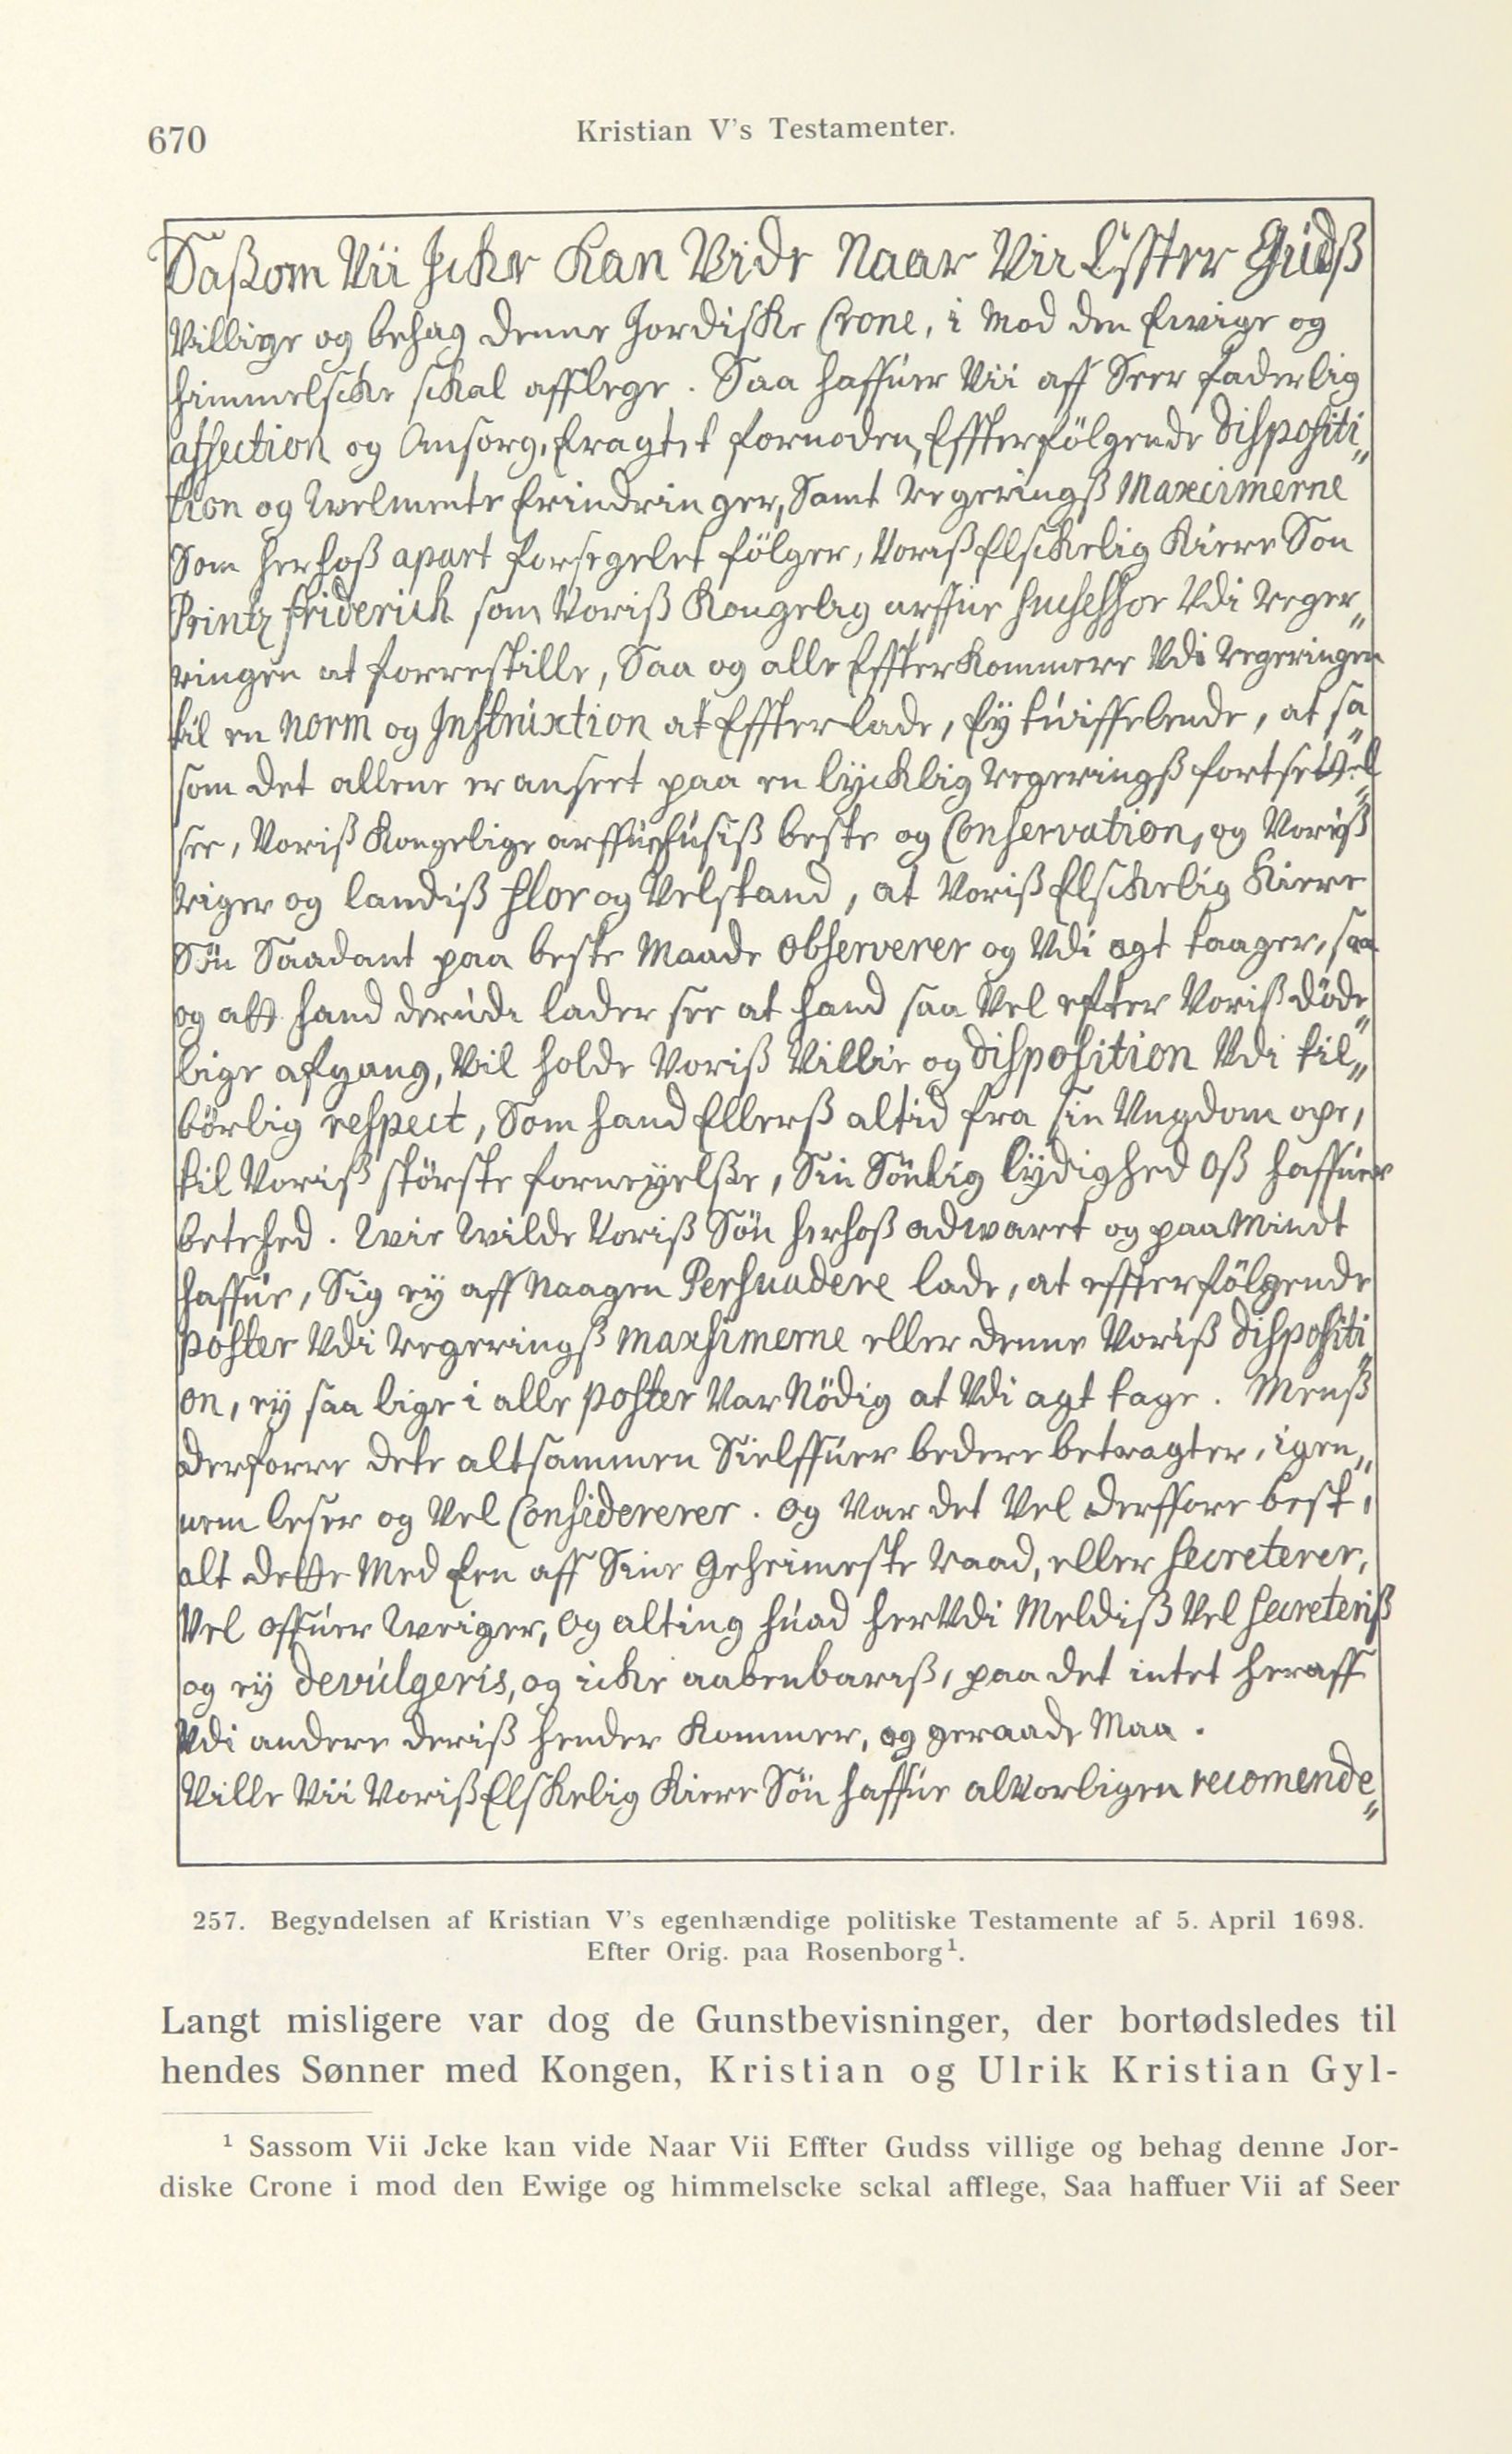 670
Kristian V's Testamenter.
Saßom Vii Jcke Kan Vide Naar Vii Effter Gudß
Villige og behag denne Jordiske Crone, i mod den Ewige og
himmelscke sckal afflege. Saa haffuer Vii aff Seer faderlig
affection og Omsorg, Eragtet fornoden, Effterfölgende dispositi„
tion og Welmente Erindringer, Samt regeringß Maxcimerne
Som herhoß apart forsegelet fölger, Voriß Elsckelig Kiere Son
Printz friderich som Voriß Kongelig arffue sucheshor Vdi reger„
ringen at forrestille, Saa og alle Effterkommere Vdi regeringen
til en norm og Instruxtion at Effterlade, Ey tuiffelende, at sa„
som det allene er anseet paa en lycklig regeringß fortsettel„
see, Voriß Kongelige arffuehusiß beste og Conservation, og Voriß
riger og landiß flor og Velstand, at Voriß Elsckelig Kiere
Sön Saadant paa beste Maade observerer og Vdi agt taager, saa
og att hand derudi lader see at hand saa Vel efter Voriß döde„
lige afgang, Vil holde Voriß Villie og disposition Vdi til„
börlig respect, Som hand Ellerß altid fra sin Vngdom ope,
til Voriß störste forneyelße, Sin Sönlig lydighed Oß haffuer
betehed. Wie Wilde Voriß Sön herhoß adwaret og paamindt
haffue, Sig ey aff Naagen Persuadere lade, at effterfölgende
poster Vdi regeringß maxsimerne eller denne Voriß dispositi
on, ey saa lige i alle poster Var Nödig at Vdi agt tage. Menß
derforre dete altsammen Sielffuer bedere betragter, igen„
nem leser og Vel Considererer. og Var det Vel derffore best,
alt dette Med Een aff Sine Geheimeste raad, eller secreterer,
Vel offuer Weiger, og alting huad her Vdi Meldiß Vel secreteriß
og ey devulgeris, og icke aabenbariß, paa det intet heraff
Vdi andere deriß hender Kommer, og geraade Maa.
Ville Vii Voriß Elskelig Kiere Sön haffue alvorligen recomende„
257. Begyndelsen af Kristian V's egenhændige politiske Testamente af 5. April 1698.
Efter Orig. paa Rosenborg¹.
Langt misligere var dog de Gunstbevisninger, der bortødsledes til
hendes Sønner med Kongen, Kristian og Ulrik Kristian Gyl-
¹ Sassom Vii Jcke kan vide Naar Vii Effter Gudss villige og behag denne Jor-
diske Crone i mod den Ewige og himmelscke sckal afflege, Saa haffuer Vii af Seer